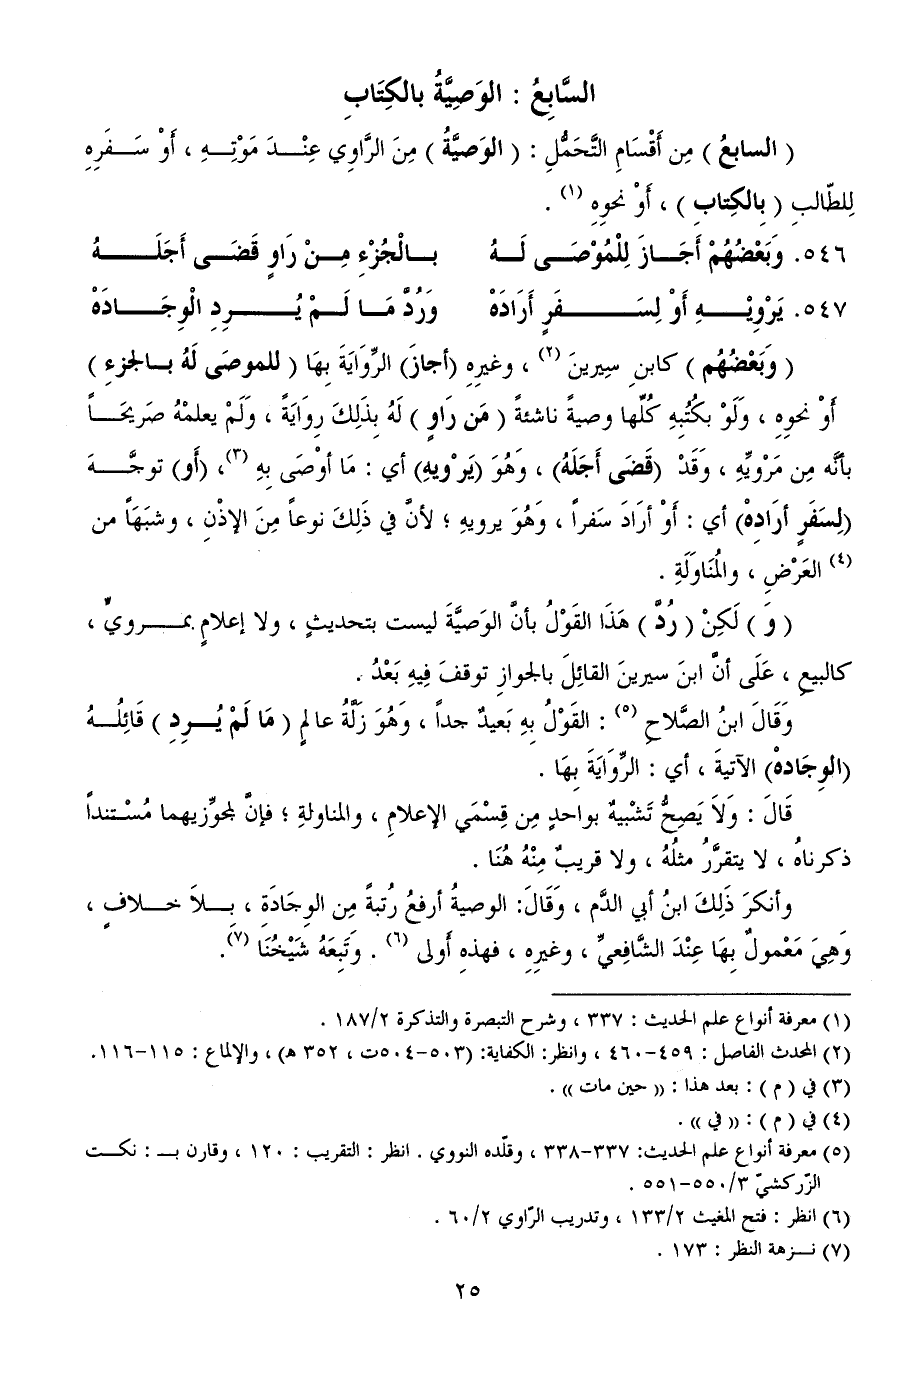 السَّابِعُ : الوَصِيَّةُ بالكِتَابِ
( السابعُ ) مِن أَقْسَامِ التَّحَمُّلِ : ( الوَصيَّةُ ) مِنَ الرَّاوِي عِنْـدَ مَوْتِـهِ ، أَوْ سَـفَرِهِ
لِلطّالبِ ( بِالكِتابِ ) ، أَوْ نحوِهِ (١) .
٥٤٦. وَبَعْضُهُمْ أَجَـازَ لِلْمُوْصَـى لَـهُ بـالْجُزْءِ مِـنْ رَاوٍ قَضَـى أَجَلَـهُ
٥٤٧. يَرْوِيْـهِ أَوْ لِسَـفَرٍ أَرَادَهْ وَرُدَّ مَـا لَـمْ يُـرِدِ الْوِجَـادَهْ
( وَبَعْضُهُم ) كابنِ سِيرينَ (٢) ، وغيرِهِ (أجازَ) الرِّوَايَةَ بِهَا ( للموصَى لَهُ بـالجزءِ )
أَوْ نحوِهِ ، وَلَوْ بكُتُبِهِ كُلِّها وصيةً ناشئةً ( مَن رَاوٍ ) لَهُ بذَلِكَ روايَةً ، وَلَمْ يعلمْهُ صَريحَـاً
بأنَّه مِن مَرْويِّهِ ، وَقَدْ (قَضَى أجَلَهُ) ، وَهُوَ (يَرْويهِ) أي : مَا أوْصَى بِهِ (٣)، (أَو) توجَّـهَ
(لِسَفَرٍ أرادهْ) أي : أَوْ أرَادَ سَفراً ، وَهُوَ يرويهِ ؛ لأنَّ في ذَلِكَ نوعاً مِنَ الإذْنِ ، وشبَهَاً من
(٤) العَرْضِ ، والْمُنَاوَلَةِ .
( وَ ) لَكِنْ ( رُدَّ ) هَذَا القَوْلُ بأنَّ الوَصيَّةَ ليست بتحديثٍ ، ولا إعلامٍ بمـرويٍّ ،
كالبيعِ ، عَلَى أنَّ ابنَ سيرينَ القائِلَ بالجوازِ توقفَ فِيهِ بَعْدُ .
وَقَالَ ابنُ الصَّلاحِ (٥) : القَوْلُ بِهِ بَعيدٌ جداً ، وَهُوَ زَلَّةُ عالمٍ ( مَا لَمْ يُـرِدِ ) قَائِلُـهُ
(الوِجَادهْ) الآتيةَ ، أي : الرِّوَايَةَ بِهَا .
قَالَ : وَلاَ يَصِحُّ تَشْبيهٌ بواحدٍ مِن قِسْمَي الإعلامِ ، والمناولةِ ؛ فإنَّ لمجوِّزيهما مُسْـتنداً
ذكرناهُ ، لا يتقرَّرُ مثلُهُ ، ولا قريبٌ مِنْهُ هُنَا .
وأنكرَ ذَلِكَ ابنُ أبي الدَّم ، وَقَالَ: الوصيةُ أرفعُ رُتبةً مِن الوِجَادَةِ ، بـلاَ خـلافٍ ،
وَهِيَ مَعْمولٌ بِهَا عِنْدَ الشَّافعيِّ ، وغيرِهِ ، فهذهِ أَولى (٦) . وَتَبِعَهُ شَيْخُنَا (٧).
(١) معرفة أنواع علم الحديث : ٣٣٧ ، وشرح التبصرة والتذكرة ١٨٧/٢ .
(٢) المحدث الفاصل : ٤٥٩-٤٦٠ ، وانظر: الكفاية: (٥٠٣-٥٠٤ت ، ٣٥٢ هـ) ، والإلماع : ١١٥-١١٦.
(٣) في ( م ) : بعد هذا : (( حين مات )) .
(٤) في ( م ) : (( في )) .
(٥) معرفة أنواع علم الحديث: ٣٣٧-٣٣٨ ، وقلّده النووي . انظر : التقريب : ١٢٠ ، وقارن بـ : نكـت
الزّركشيّ ٥٥٠/٣-٥٥١ .
(٦) انظر : فتح المغيث ١٣٣/٢ ، وتدريب الرّاوي ٦٠/٢ .
(٧) نـزهة النظر : ١٧٣ .
٢٥